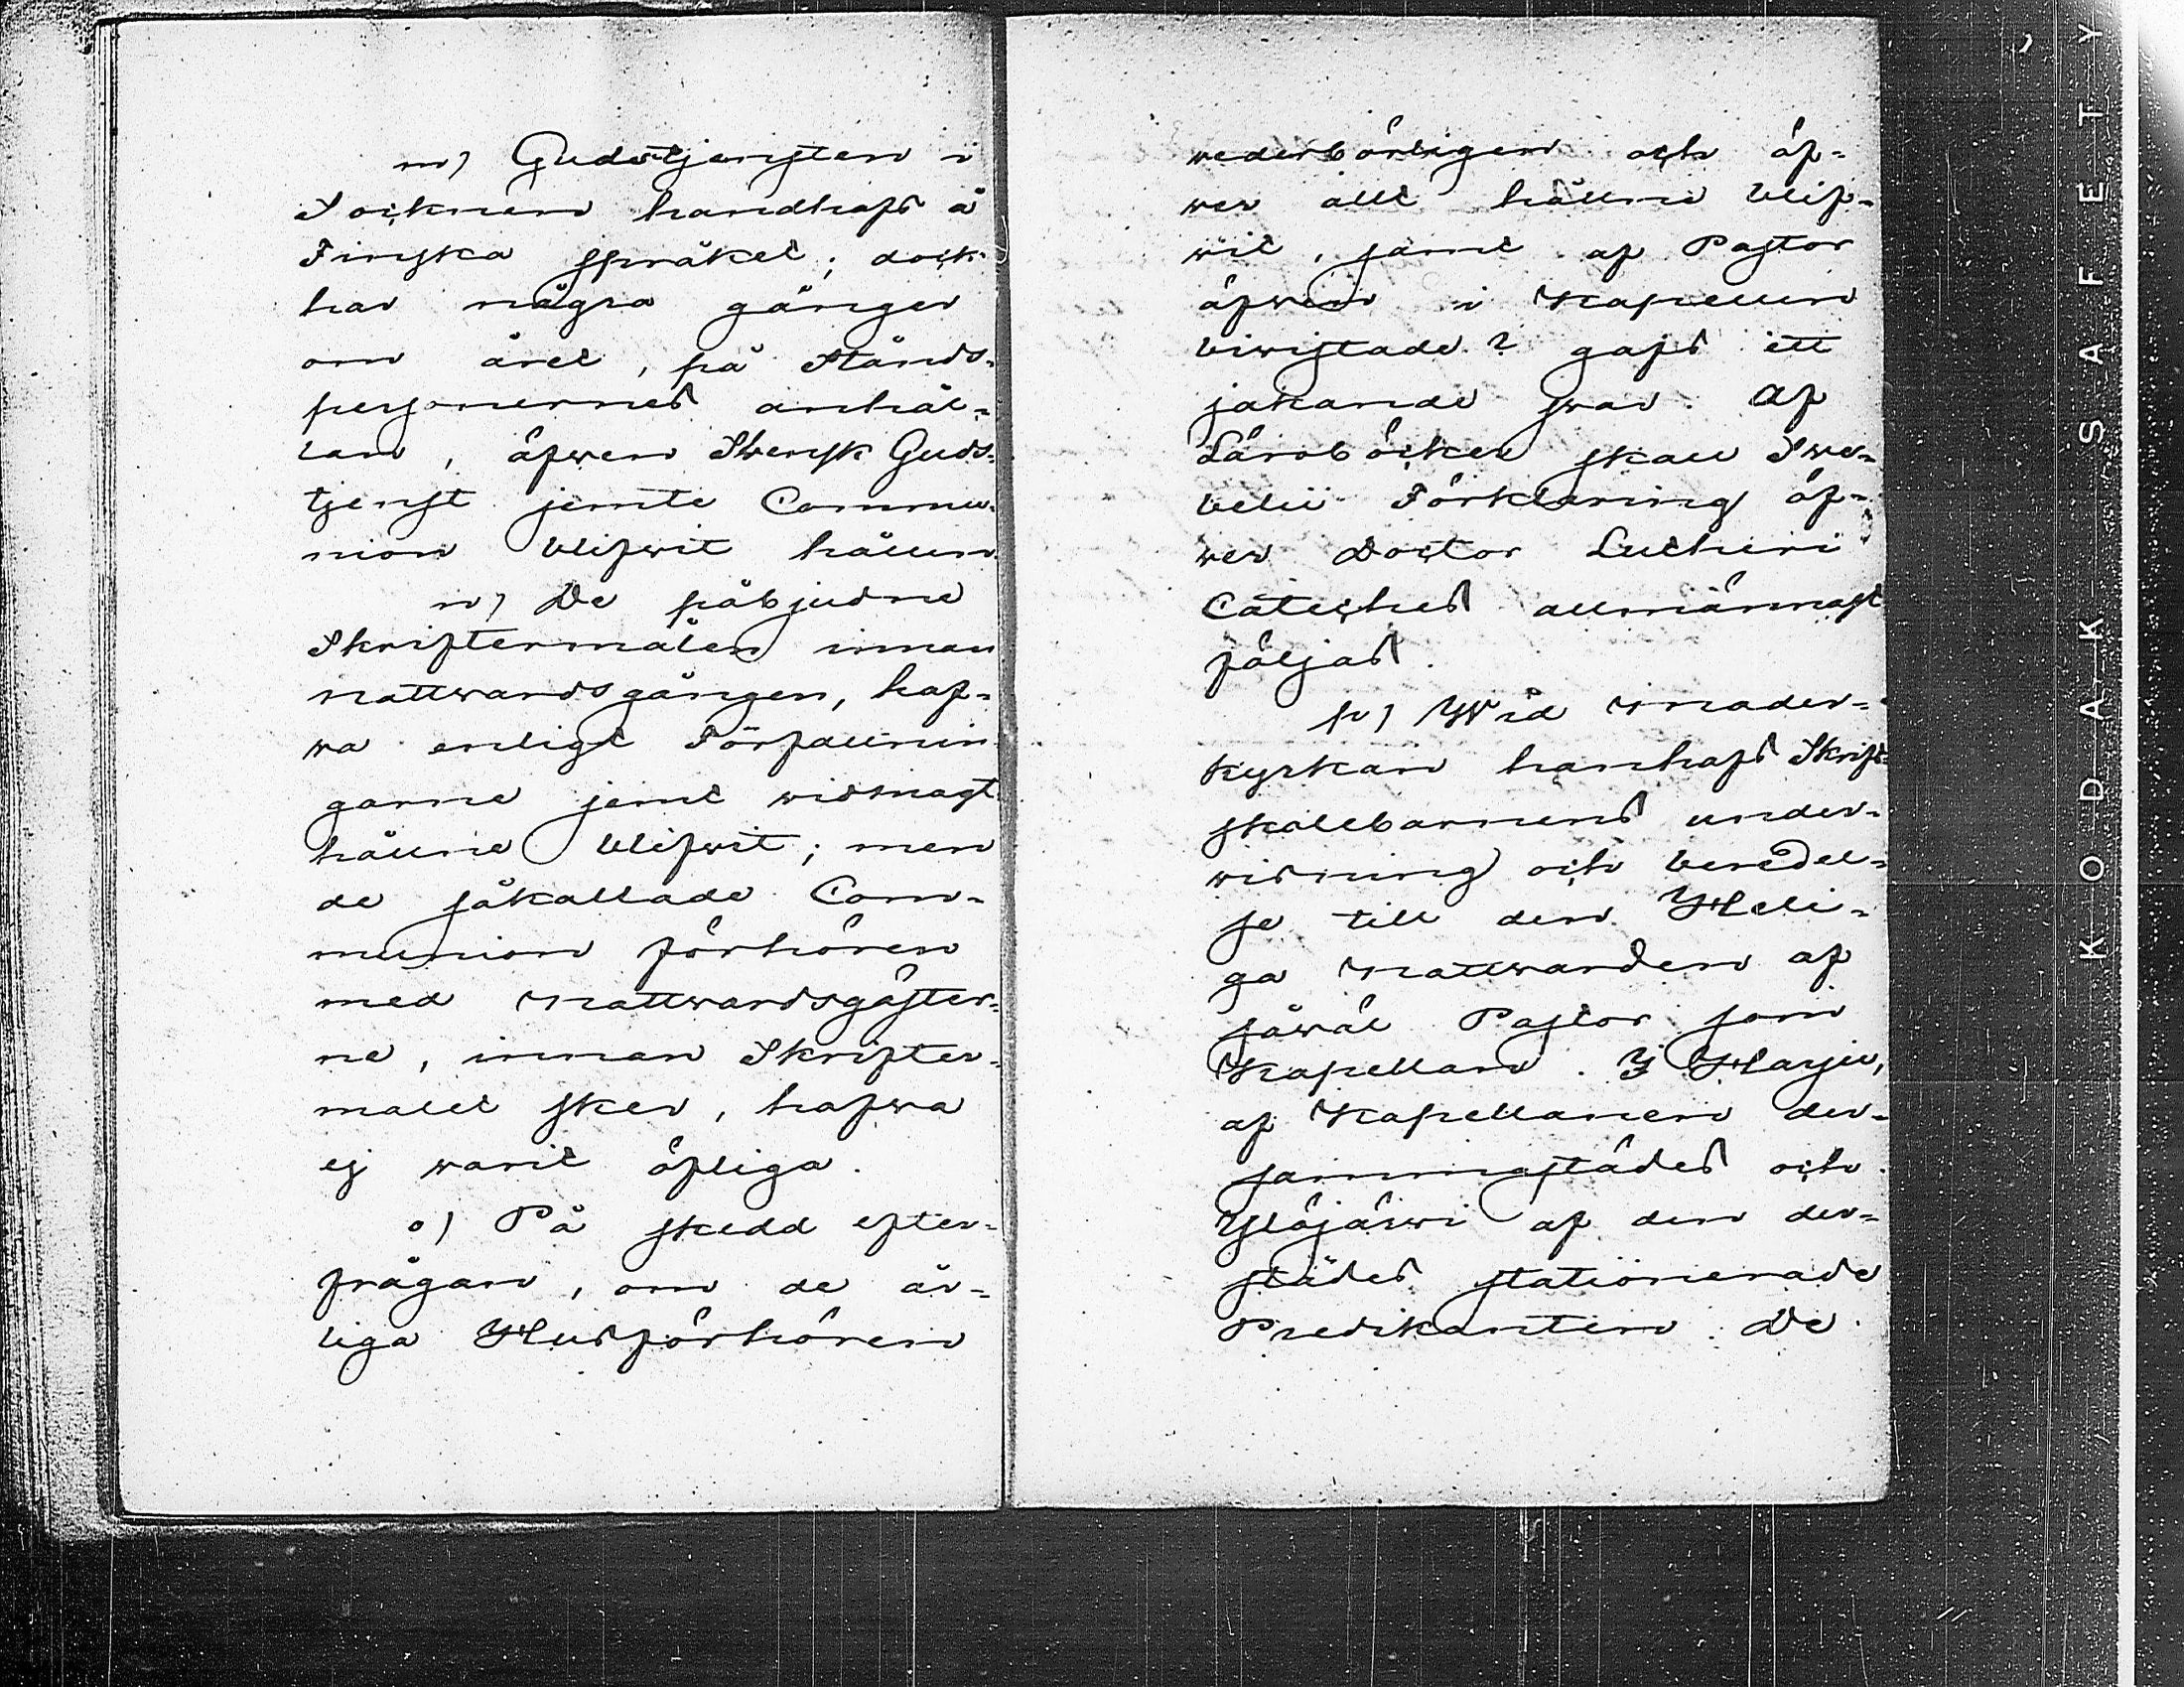 m) Gudstjensten i
Socknen handhafs å
Finska språket; dock
har några gånger
om året, på Stånds-
personernes anhål-
lan, äfwen Swensk Guds-
tjenst jemte Commu-
nion blifwit hållen
n) De påbjudne
Skriftermålen innan
nattwardsgången, haf-
wa enligt Författnin-
garne jemt widmagt
hållne blifwit; men
de såkallade Com-
munion förhören
med nattwardsgäster-
ne, innan Skrifter-
målet sker, hafwa
ej warit öfliga.
o) På skedd efter-
frågan, om de år-
liga Husförhören
wederbörligen och öf-
wer allt hållne blif-
wit, samt af Pastor
äfwen i Kapellen
biwistade? gafs ett
jakande swar. Af
Läroböcker skall Swe-
belii Förklaring öf-
wer Doctor Lutheri
Cateches allmännast
följas.
p) Wid moder-
kyrkan hanhafs Skrift-
skolebarnens under-
wisning och beredel-
se till den Heli-
ga nattwarden af
såwäl Pastor som
Kapellan. I Harju,
af Kapellanen der-
sammastädes och
Ylöjärwi af den der-
städes stationerade
Predikanten. De
KODAK SAFETY